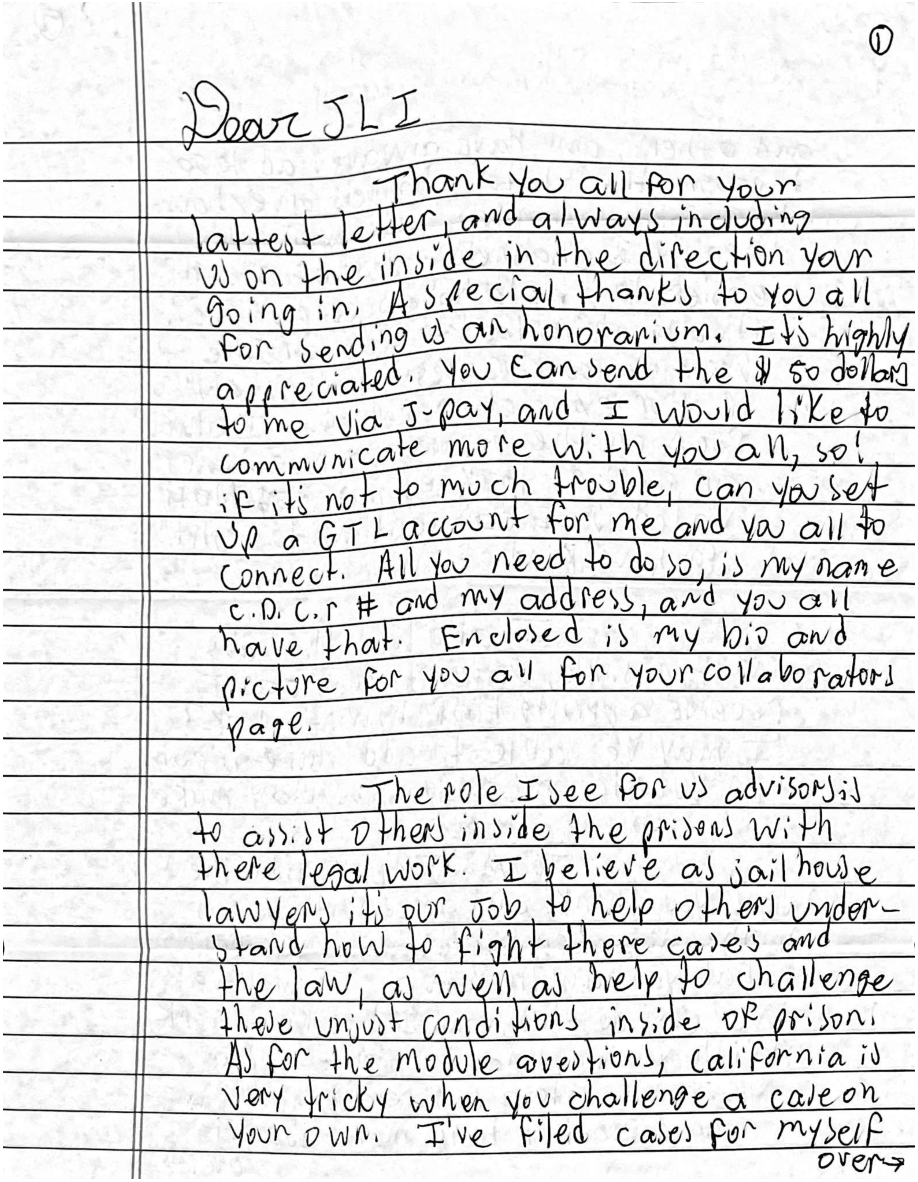 ①
Dear JLI
Thank you all for your
lattest letter, and always including
us on the inside in the direction your
going in. A special thanks to you all
for sending us an honorarium. Its highly
appreciated. You can send the $ 50 dollars
to me via J-pay, and I would like to
communicate more with you all, so!
if it's not to much trouble, can you set
up a GTL account for me and you all to
connect. All you need to do so, is my name
C.D.C.r # and my address, and you all
have that. Enclosed is my bio and
picture for you all for your collaborators
page.
The role I see for us advisors is
to assist others inside the prisons with
there legal work. I believe as jailhouse
lawyers its our job to help others under-
stand how to fight there cases and
the law, as well as help to challenge
these unjust conditions inside of prison.
As for the module questions, California is
very tricky when you challenge a case on
your own. I've filed cases for myself
over→